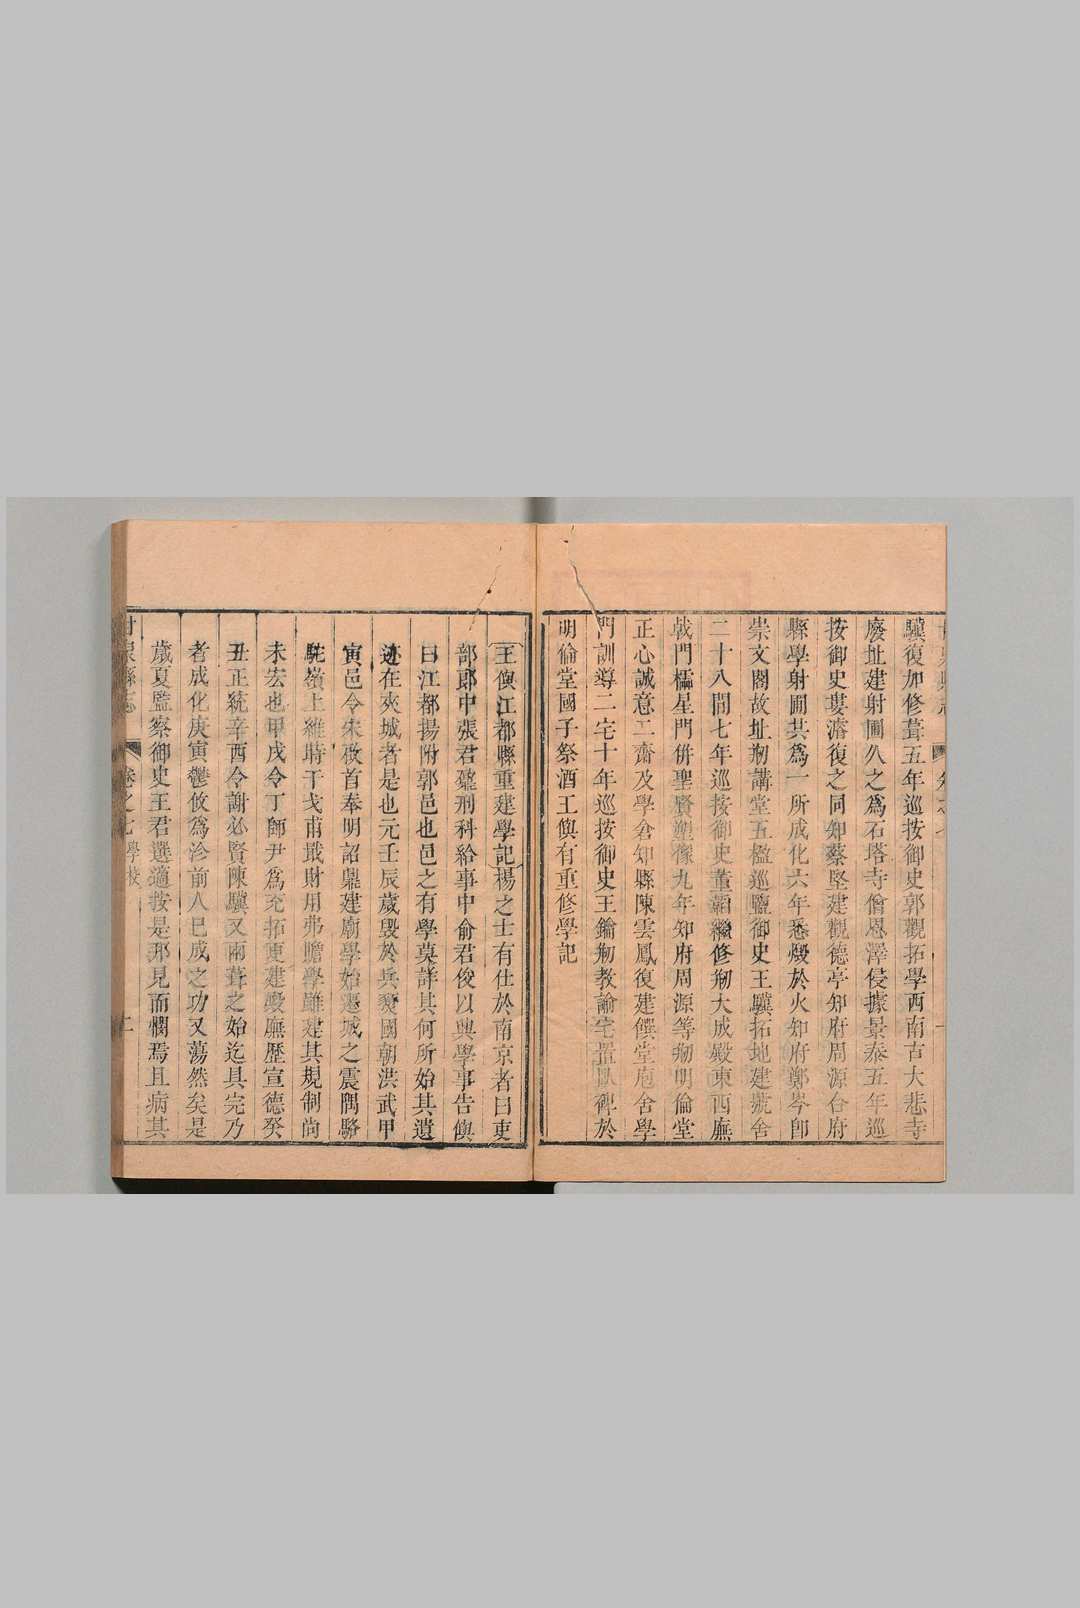 驥復加修葺五年巡按御史郭觀拓學西南古大悲寺
廢址建射圃久之爲石塔寺僧恩澤侵據景泰五年巡
按御史婁濬復之同知蔡堅建觀德亭知府周源合府
縣學射圃共爲一所成化六年悉燬於火知府鄭岑卽
崇文閣故址剏講堂五楹巡鹽御史王驥拓地建號舍
二十八間七年巡按御史董韜繼修剏大成殿東西廡
戟門櫺星門併聖賢塑像九年知府周源等剏明倫堂
正心誠意二齋及學倉知縣陳雲鳳復建饌堂庖舍學
門訓導二宅十年巡按御史王鑰剏教諭宅置臥碑於
明倫堂國子祭酒王㒜有重修學記
王㒜江都縣重建學記楊之士有仕於南京者曰吏
部郎中張君鼐刑科給事中俞君俊以興學事告㒜
曰江都揚附郭邑也邑之有學莫詳其何所始其遺
迹在夾城者是也元壬辰歲燬於兵燹國朝洪武甲
寅邑令朱㧞首奉明詔鼎建廟學始遷城之震隅駱
駝嶺上維時干戈甫戢財用弗贍學雖建其規制尚
未宏也甲戌令丁師尹爲充拓更建㕙廡歷宣德癸
丑正統辛酉令謝必賢陳驥又兩葺之始迄具完乃
者成化庚寅鬱攸爲沴前人已成之功又蕩然矣是
歲夏監察御史王君選適按是邦見而憫焉且病其
甘泉縣志 卷之七學校 二